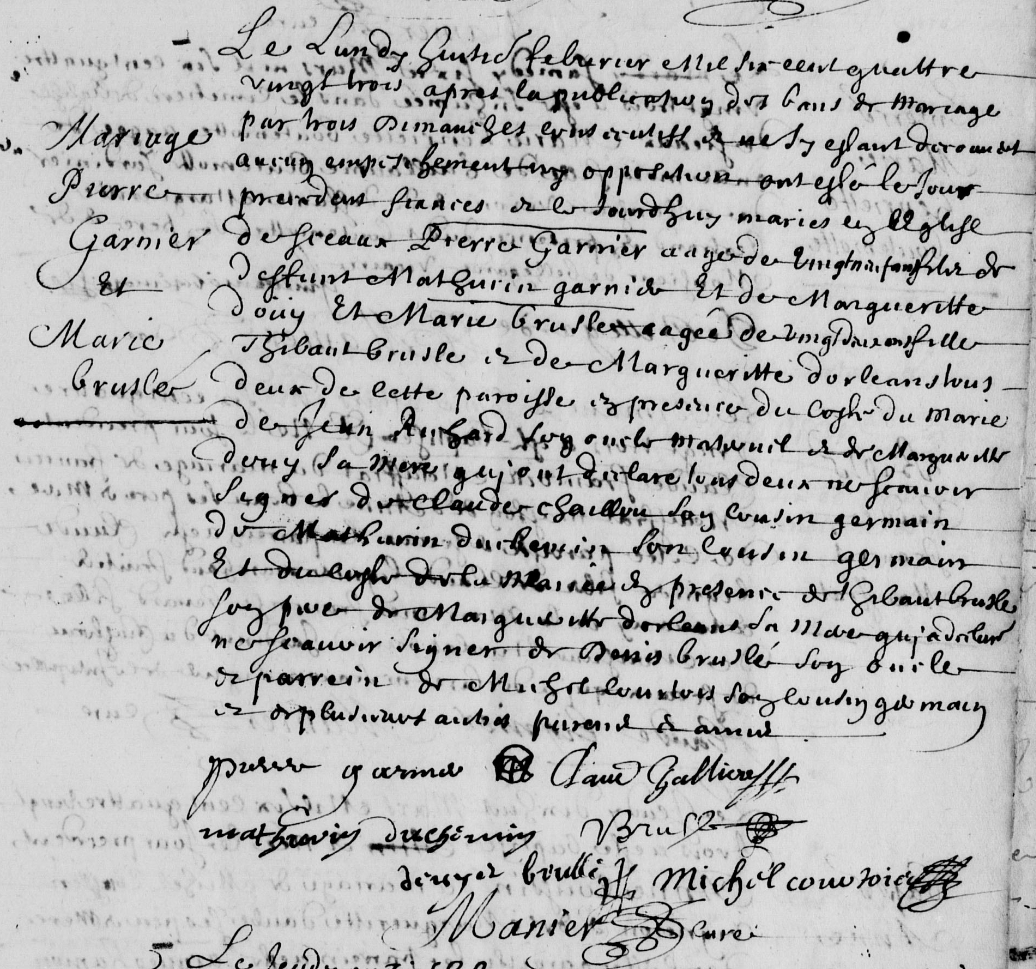 Le Lundy huitie febvrier mil six cent quattre
vingt trois apres la publication des bans de Mariage
par trois Dimanches consecutifs et ne sy estant decouvert
aucun empeschement ny opposition ont esté le Jour
precedent fiances et le Jourdhuy maries en l Eglise
de sceaux Pierre Garnier aagé de vingt ans fils de
deffunt Mathurin garnier Et de Margueritte
Douy Et Marie bruslé aagée de vingt deux ans fille
Thibaut bruslé et de Margueritte dorleans tous
deux de cette paroisse en presence du Costé du Marié
de Jean Richard son oncle maternel et de Margueritte
Douy sa mere qui ont declaré tous deux ne scavoir
signer de Claude chaillou son cousin germain
de Mathurin duchemin son cousin germain
Et du costé de la Mariée en presence de Thibaut bruslé
son pere de Margueritte dorleans sa Mere qui a declaré
ne scavoir signer de Denis bruslé son oncle
et parrein de Michel Courtois son cousin germain
et de plusieurs autres parens et amis
Mariage
Pierre
Garnier
Et
Marie
bruslé
pierre garnier Claude
mathurin duchemin Brusle
brulle Michel courtois
Manier Curé
Le Jeudy